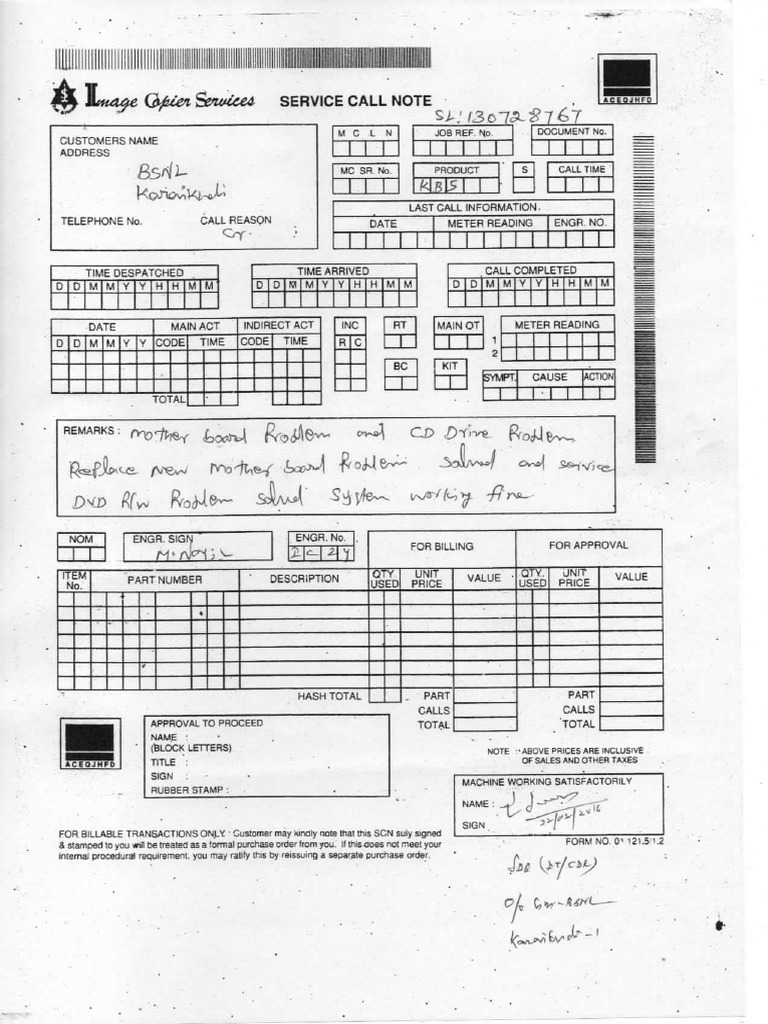 Image Copier Services SERVICE CALL NOTE
ACEQJHFD
SL: 130728767
CUSTOMERS NAME
ADDRESS
BSNL
Karaikudi
TELEPHONE No. CALL REASON
M C L N JOB REF. No. DOCUMENT No.
MC SR. No. PRODUCT S CALL TIME
KBS
LAST CALL INFORMATION.
DATE METER READING ENGR. NO.
TIME DESPATCHED TIME ARRIVED CALL COMPLETED
D D M M Y Y H H M M D D M M Y Y H H M M D D M M Y Y H H M M
DATE MAIN ACT INDIRECT ACT INC RT MAIN OT METER READING
D D M M Y Y CODE TIME CODE TIME R C 1
2
BC KIT
SYMPT. CAUSE ACTION
TOTAL
REMARKS : Mother board Problem and CD Drive Problem
Replace New Mother board Problem Solved and service
DVD R/W Problem Solved System working fine
NOM ENGR. SIGN ENGR. No. FOR BILLING FOR APPROVAL
IC24
ITEM No. PART NUMBER DESCRIPTION QTY. USED UNIT PRICE VALUE QTY. USED UNIT PRICE VALUE
HASH TOTAL PART PART
CALLS CALLS
TOTAL TOTAL
ACEQJHFD
APPROVAL TO PROCEED
NAME :
(BLOCK LETTERS)
TITLE :
SIGN :
RUBBER STAMP :
NOTE : ABOVE PRICES ARE INCLUSIVE
OF SALES AND OTHER TAXES
MACHINE WORKING SATISFACTORILY
NAME :
SIGN 22/02/2016
FOR BILLABLE TRANSACTIONS ONLY : Customer may kindly note that this SCN suly signed
& stamped to you will be treated as a formal purchase order from you. If this does not meet your
internal procedural requirement, you may ratify this by reissuing a separate purchase order.
FORM NO. 01 121.5/1.2
O/o GM-BSNL
Karaikudi-1